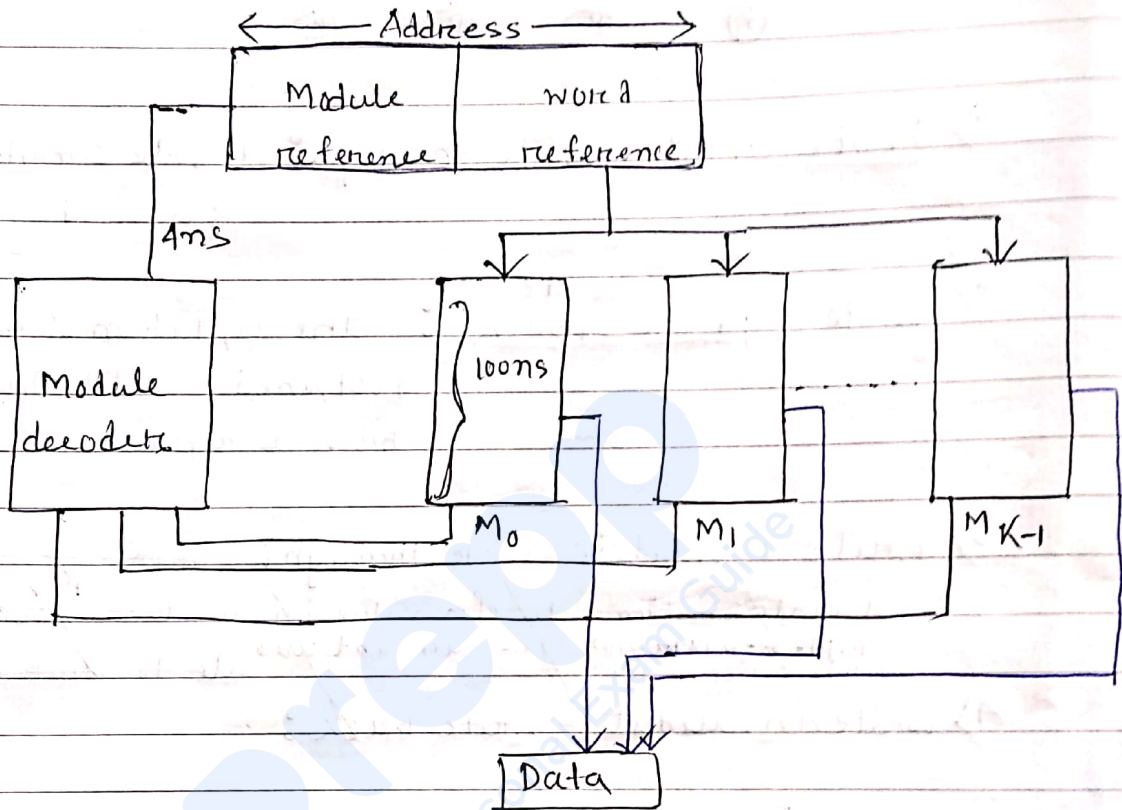 Address
Module reference
word reference
4ns
Module decoder
100ns
M0
M1
MK-1
Data
prepp
Personal Exam Guide